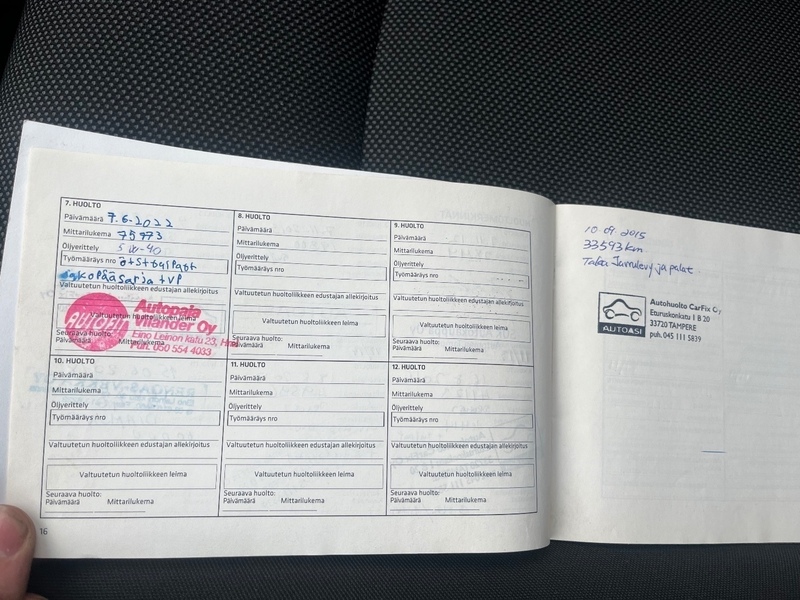 7. HUOLTO
Päivämäärä 7.6.2022
Mittarilukema 75773
Öljyerittely 5W-40
Työmääräys nro
jakopääsarja + VP
Valtuutetun huoltoliikkeen edustajan allekirjoitus
Valtuutetun huoltoliikkeen leima
Autopaja
Vilander Oy
Eino Leinon katu 23,
Puh. 050 554 4033
Seuraava huolto:
Päivämäärä Mittarilukema
8. HUOLTO
Päivämäärä
Mittarilukema
Öljyerittely
Työmääräys nro
Valtuutetun huoltoliikkeen edustajan allekirjoitus
Valtuutetun huoltoliikkeen leima
Seuraava huolto:
Päivämäärä Mittarilukema
9. HUOLTO
Päivämäärä
Mittarilukema
Öljyerittely
Työmääräys nro
Valtuutetun huoltoliikkeen edustajan allekirjoitus
Valtuutetun huoltoliikkeen leima
Seuraava huolto:
Päivämäärä Mittarilukema
10. HUOLTO
Päivämäärä
Mittarilukema
Öljyerittely
Työmääräys nro
Valtuutetun huoltoliikkeen edustajan allekirjoitus
Valtuutetun huoltoliikkeen leima
Seuraava huolto:
Päivämäärä Mittarilukema
11. HUOLTO
Päivämäärä
Mittarilukema
Öljyerittely
Työmääräys nro
Valtuutetun huoltoliikkeen edustajan allekirjoitus
Valtuutetun huoltoliikkeen leima
Seuraava huolto:
Päivämäärä Mittarilukema
12. HUOLTO
Päivämäärä
Mittarilukema
Öljyerittely
Työmääräys nro
Valtuutetun huoltoliikkeen edustajan allekirjoitus
Valtuutetun huoltoliikkeen leima
Seuraava huolto:
Päivämäärä Mittarilukema
16
10.09.2015
33593 km
Taka Jarrulevy ja palat
AUTOASI
Autohuolto CarFix Oy
Eturuskonkatu 1 B 20
33720 TAMPERE
puh. 045 111 5839